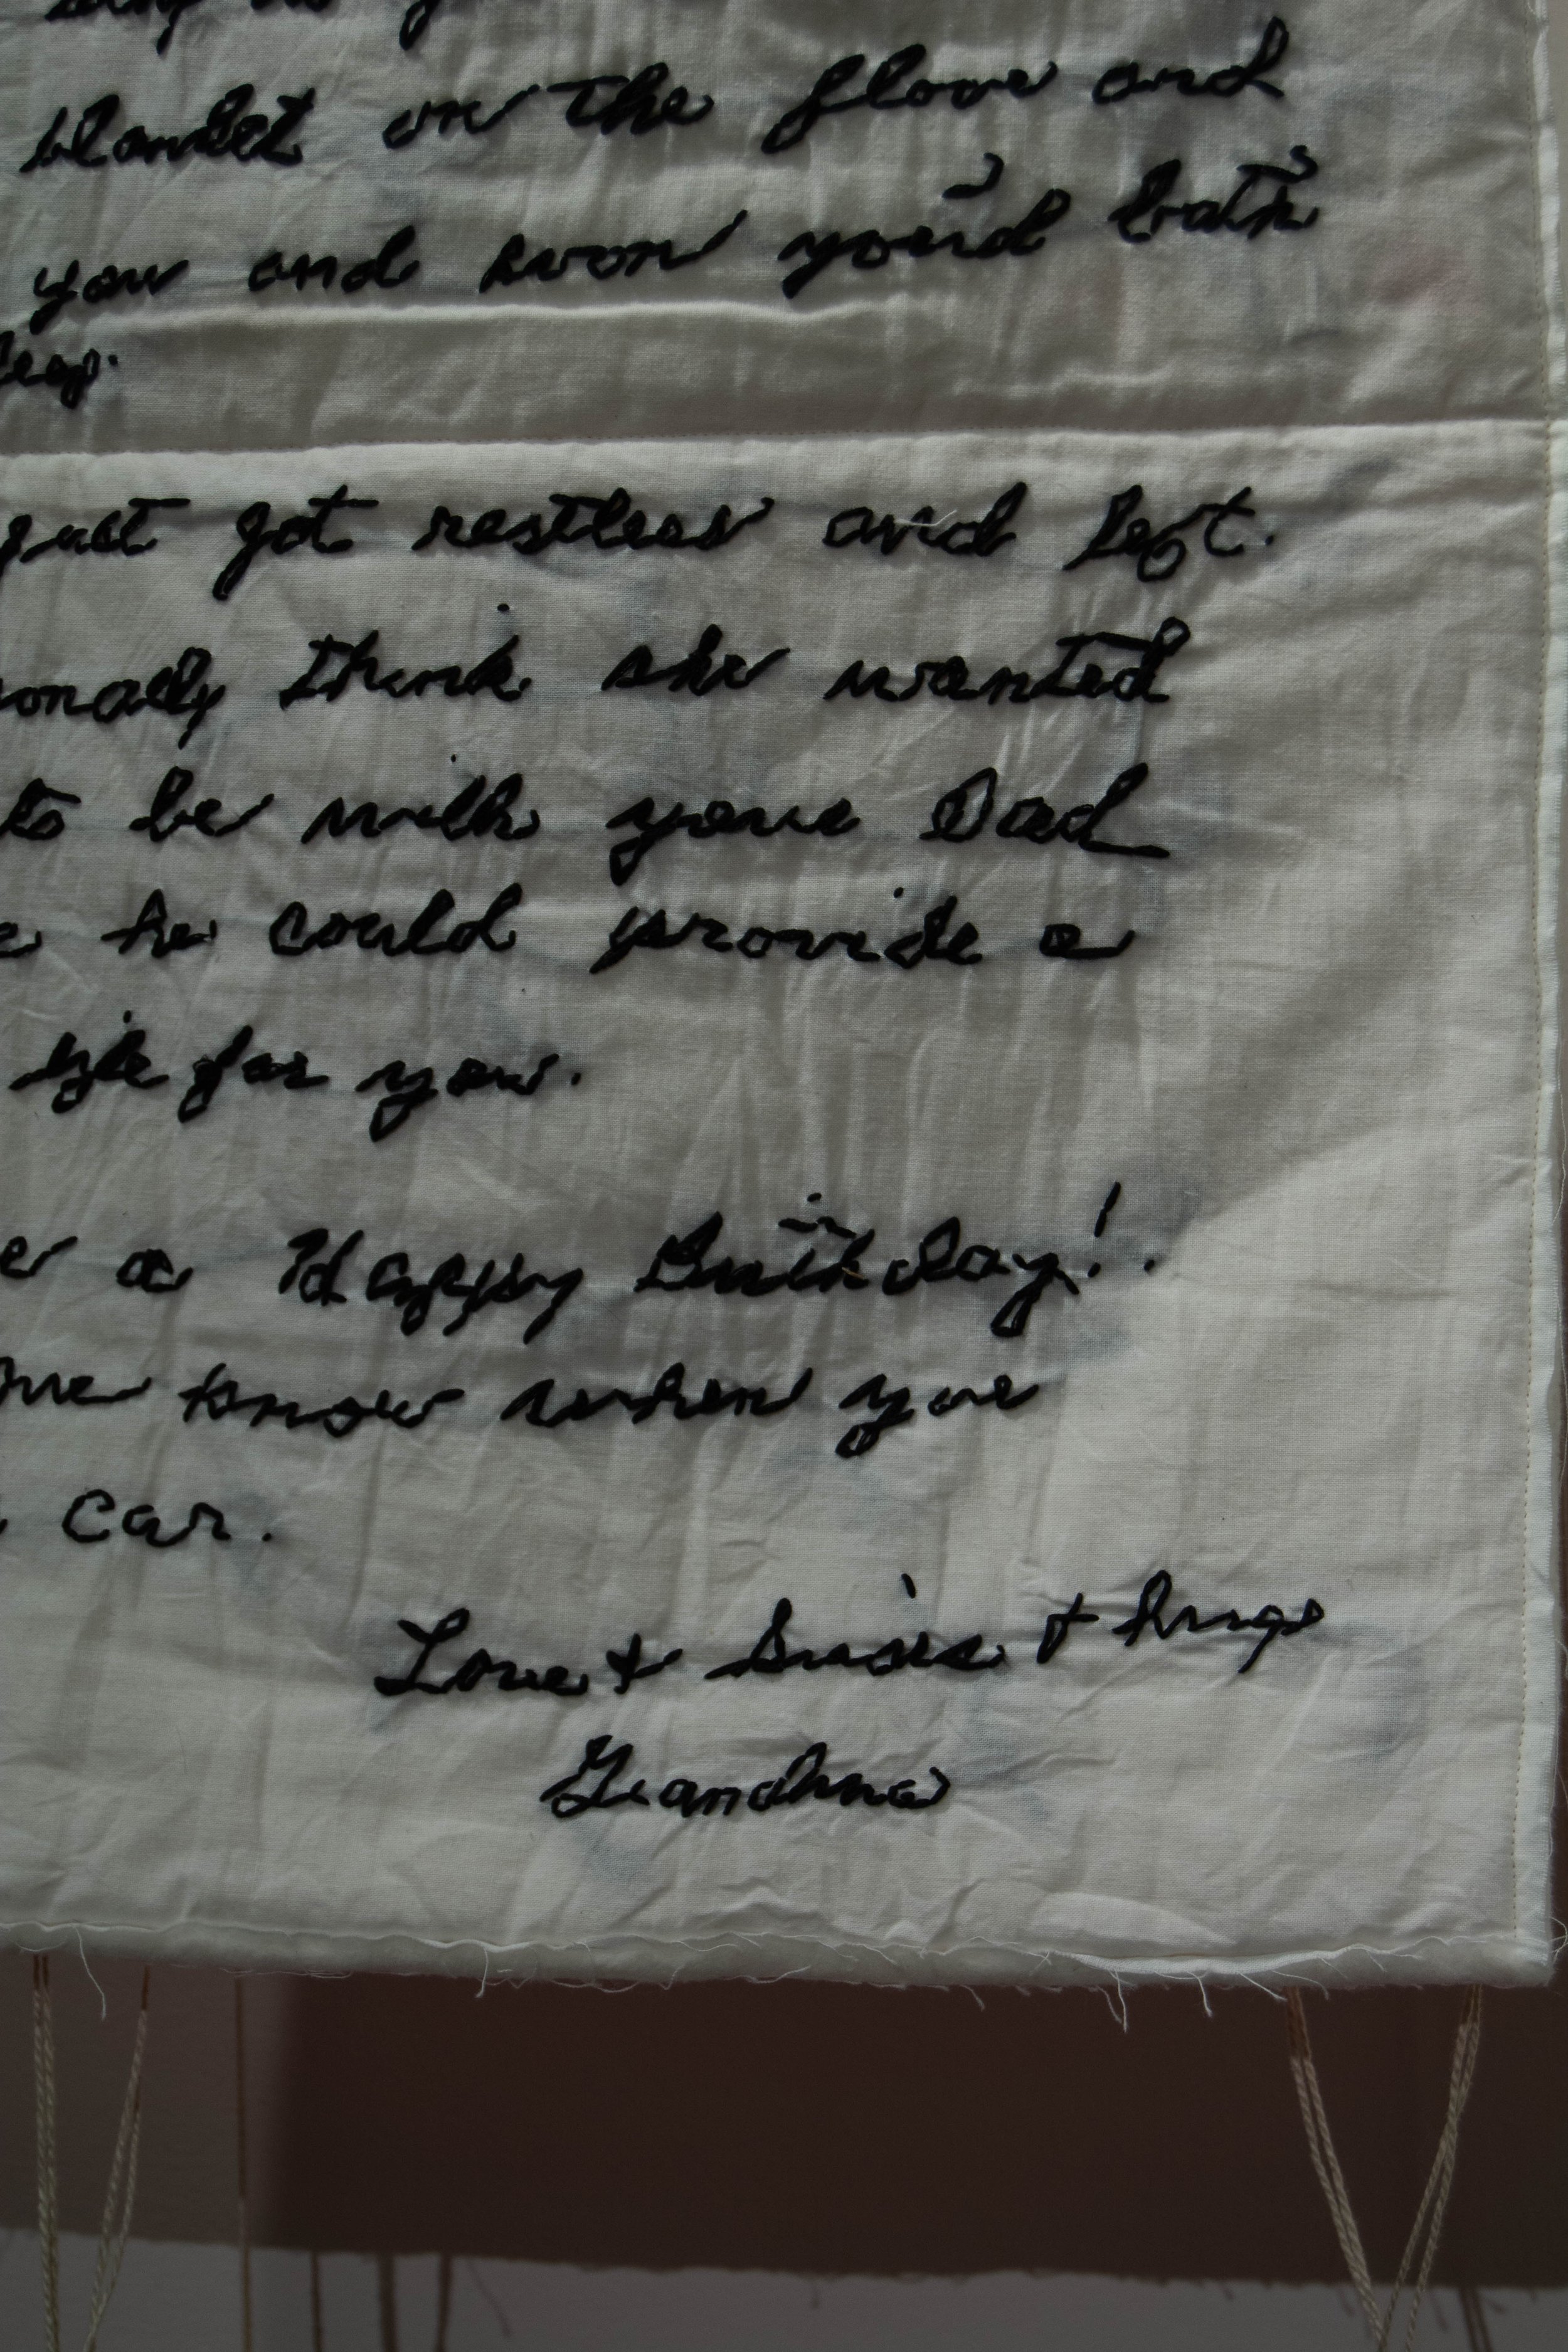 blanket on the floor and
you and soon you'd both
just got restless and left.
think she wanted
to be with your Dad
he could provide a
life for you.
a Happy Birthday!
me know when you
car.
Love & kisses & hugs
Grandma